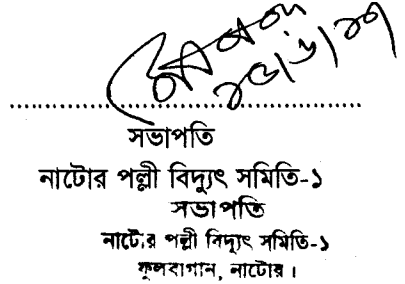 সভাপতি
নাটোর পল্লী বিদ্যুৎ সমিতি-১
সভাপতি
নাটোর পল্লী বিদ্যুৎ সমিতি-১
ফুলবাগান, নাটোর।